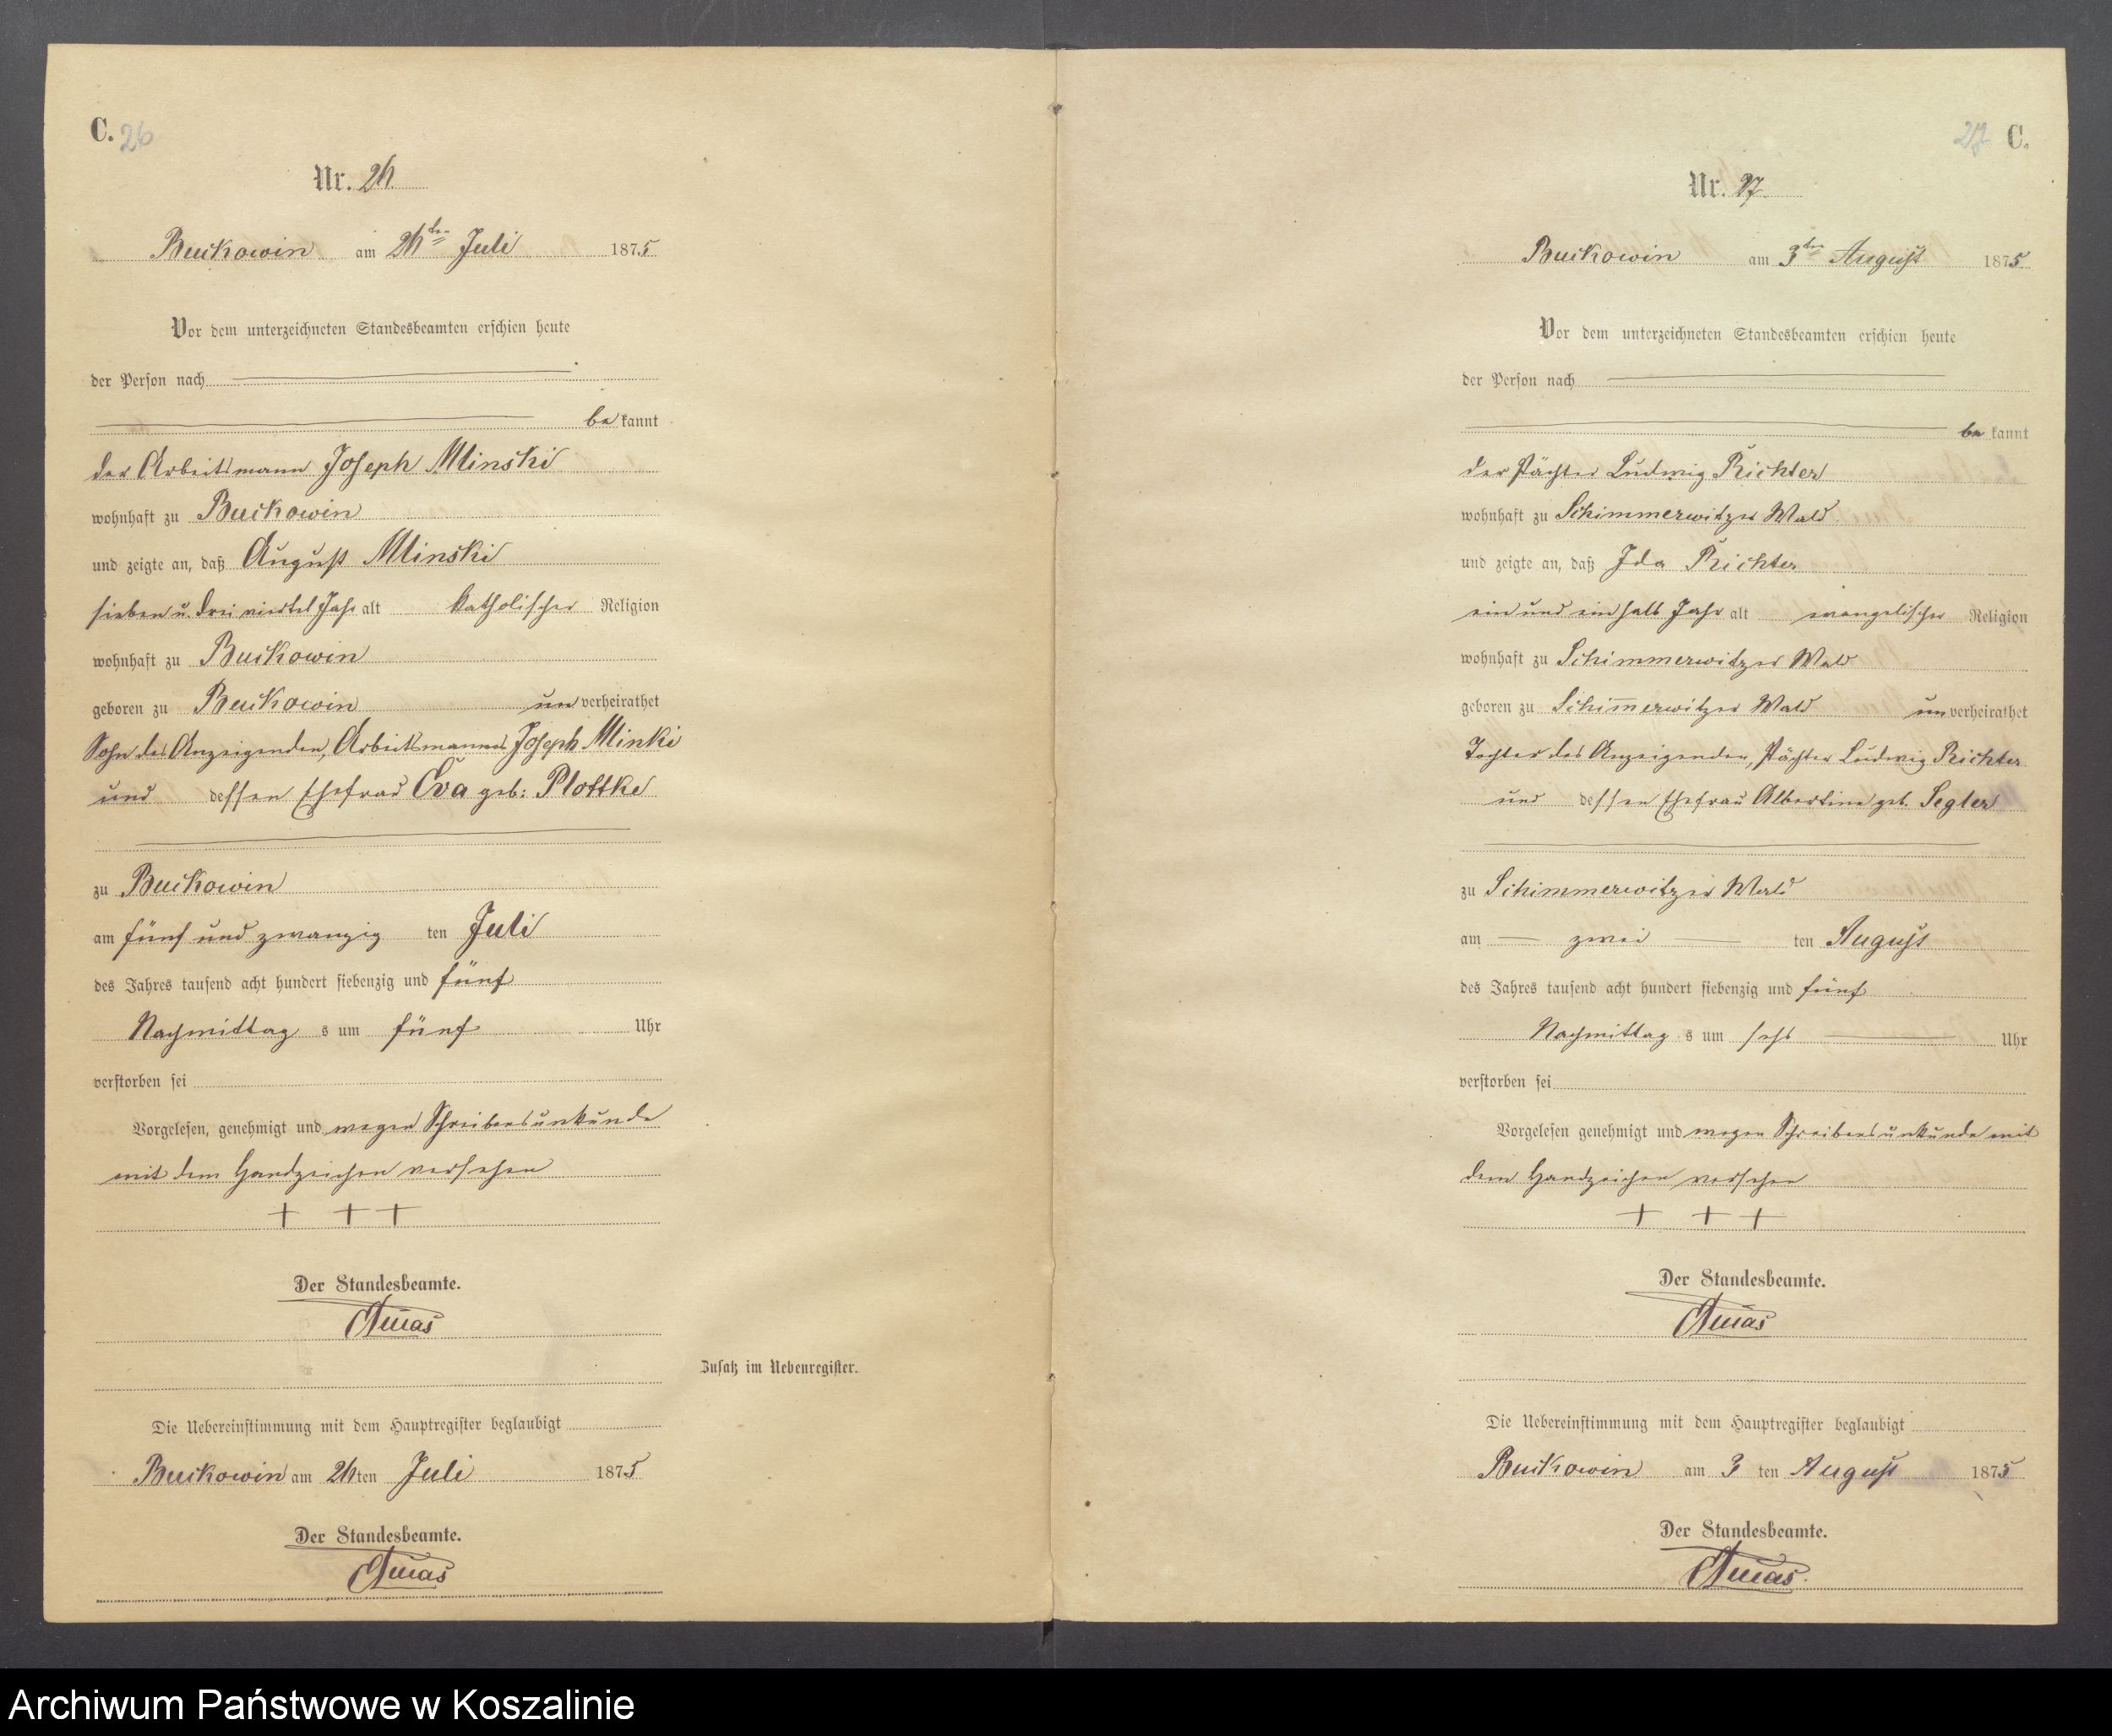 C. 26
Nr. 26.
Buckowin am 26ten Juli 1875
Vor dem unterzeichneten Standesbeamten erschien heute
der Person nach
be kannt
der Arbeitsmann Joseph Mlinski
wohnhaft zu Buckowin
und zeigte an, daß August Mlinski
sieben u. drei viertel Jahr alt katholischer Religion
wohnhaft zu Buckowin
geboren zu Buckowin un verheirathet
Sohn des Anzeigenden, Arbeitsmannes Joseph Mlinki
und dessen Ehefrau Eva geb: Plottke
zu Buckowin
am fünf und zwanzig ten Juli
des Jahres tausend acht hundert siebenzig und fünf
Nachmittag s um fünf Uhr
verstorben sei
Vorgelesen, genehmigt und wegen Schreibensunkunde
mit dem Handzeichen versehen
+ + +
Der Standesbeamte.
Zusatz im Nebenregister.
Die Uebereinstimmung mit dem Hauptregister beglaubigt
Buckowin am 26 ten Juli 1875
Der Standesbeamte.
27 C.
Nr. 27.
Buckowin am 3ten August 1875
Vor dem unterzeichneten Standesbeamten erschien heute
der Person nach
be kannt
der Pächter Ludwig Richter
wohnhaft zu Schimmerwitzer Wald
und zeigte an, daß Ida Richter
ein und ein halb Jahr alt evangelischer Religion
wohnhaft zu Schimmerwitzer Wald
geboren zu Schim̅erwitzer Wald un verheirathet
Tochter des Anzeigenden, Pächter Ludwig Richter
und dessen Ehefrau Albertine geb. Segler
zu Schimmerwitzer Wald
am zwei ten August
des Jahres tausend acht hundert siebenzig und fünf
Nachmittag s um sechs Uhr
verstorben sei
Vorgelesen genehmigt und wegen Schreibensunkunde mit
dem Handzeichen versehen
+ + +
Der Standesbeamte.
Die Uebereinstimmung mit dem Hauptregister beglaubigt
Buckowin am 3 ten August 1875
Der Standesbeamte.
Archiwum Państwowe w Koszalinie